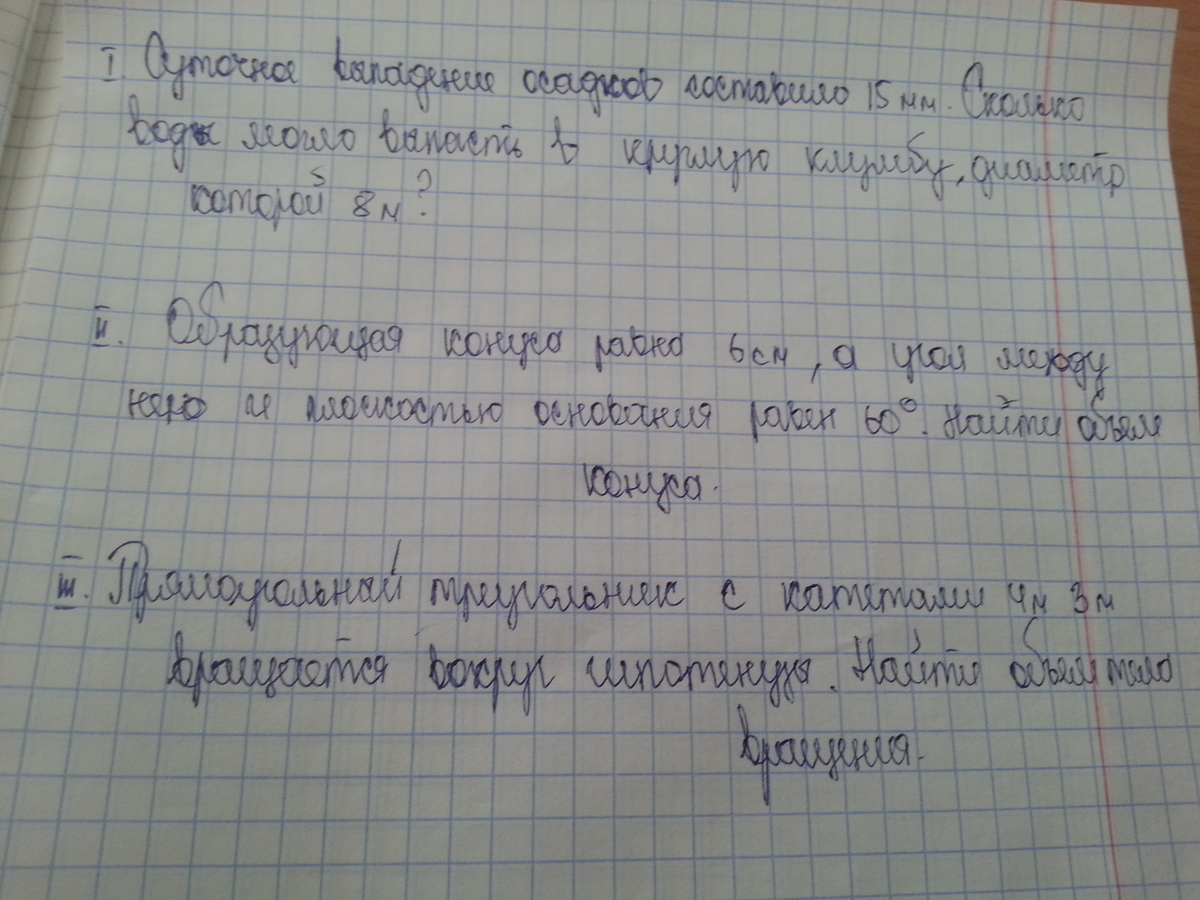 I. Суточное выпадение осадков составило 15 мм. Сколько
воды могло выпасть в круглую клумбу, диаметр
которой 8 м?
II. Образующая конуса равна 6 см, а угол между
нею и плоскостью основания равен 60°. Найти объем
конуса.
III. Прямоугольный треугольник с катетами 4м 3м
вращается вокруг гипотенузы. Найти объем тела
вращения.